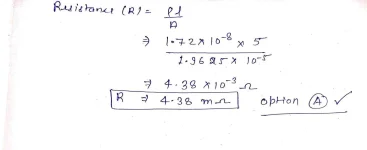 Resistance (R) = ρl
A
⇒ 1.72 × 10⁻⁸ × 5
1.9625 × 10⁻⁵
⇒ 4.38 × 10⁻³ Ω
R ⇒ 4.38 mΩ option Ⓐ ✓